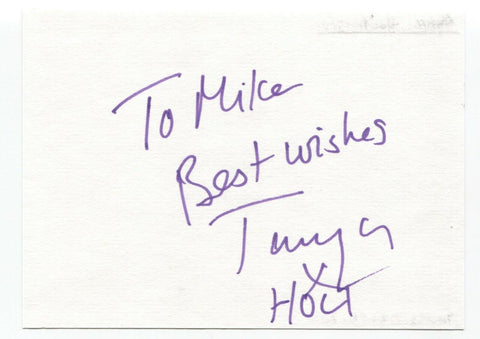 To Mike
Best wishes
Tanya